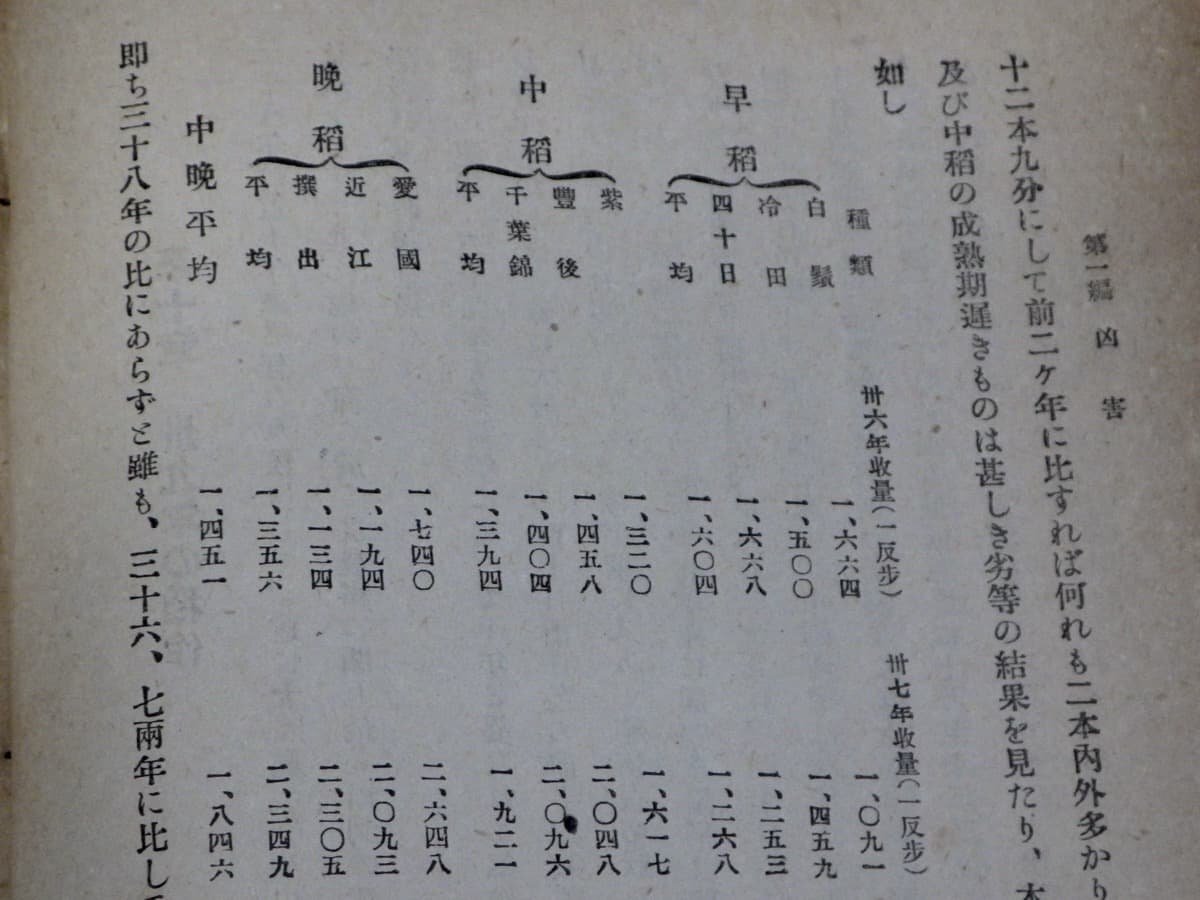 第一編 凶害
十二本九分にして前二ケ年に比すれば何れも二本內外多かり
及び中稻の成熟期遲きものは甚しき劣等の結果を見たり、本
如し
種類 卅六年收量(一反步) 卅七年收量(一反步)
早稻
白鬚 一、六六四 一、〇九一
冷田 一、五〇〇 一、四五九
四十日 一、六六八 一、二五三
平均 一、六〇四 一、二六八
中稻
紫 一、三二〇 一、六一七
豐後 一、四五八 二、〇四八
千葉錦 一、四〇四 二、〇九六
平均 一、三九四 一、九二一
晚稻
愛國 一、七四〇 二、六四八
近江 一、一九四 二、〇九三
撰出 一、一三四 二、三〇五
平均 一、三五六 二、三四九
中晚平均 一、四五一 一、八四六
即ち三十八年の比にあらずと雖も、三十六、七兩年に比して